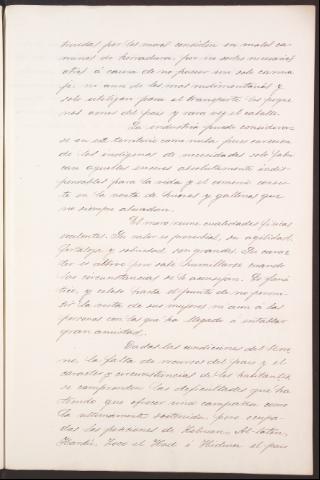 tivadas por los moros consisten en malos ca-
minos de herradura, por no serles necesarios
otros á causa de no poseer un solo carrua
je ni aun de los mas rudimentarios y
solo utilizan para el transporte los peque
nos asnos del pais y rara vez el caballo.
La industria puede considerar
se en este territorio como nula pues carecen
de los indigenas de necesidades solo fabri
can aquellos enseres absolutamente indis-
pensables para la vida y el comercio consis-
te en la venta de huevos y gallinas que
no siempre abundan.
El moro reune cualidades fisicas
excelentes. Su valor es proverbial, su agilidad,
fortaleza y sobriedad son grandes. De carac
ter es altivo pero sabe humillarse cuando
las circunstancias se lo aconsejan. Es faná
tico, y celoso hasta el punto de no permi-
tir la vista de sus mujeres ni aun á las
personas con las que ha llegado a entablar
gran amistad.
Dadas las condiciones del terre
no, la falta de recursos del pais y el
caracter y circunstancias de los habitantes
se comprenden las dificultades que ha
tenido que ofrecer una campaña como
la ultimamente sostenida, pero ocupa
das las posiciones de
Zoco el Had é el pais